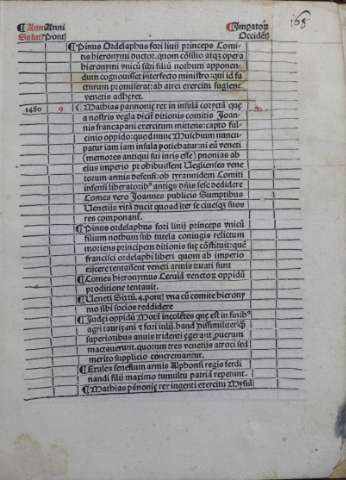 165
Anni Anni Impatorū
Salut Pont Occidēt
¶ Pinus Ordelaphus fori liuij princeps Lomi
nis hieronymi ductor, quom cōsilio atq; opera
hieronymi vnicū sibi filiū nothum apponen
dum cognouisset interfecto ministro: qui id fa
cturum promiserat: ab atrei exercitu fugiens
venetis adheret.
1480 9 ¶ Mathias pānonię rex in insulā que
a nostris vegla dicit ditionis comitis Joan
nis francapani exercitum mittens: capto ful
cinio oppido: quod nunc Muschium nuncu
patur iam iam insula potiebatur: ni eū veneti
(memores antiqui sui iuris esse) pnonias ab
eius imperio prohibuissent Veglienses vene
torum armis defensi: ob tyrannidem Lomiti
infensi liberatoribᵒ antiqs dñis sese dedidere
Lomes vero Joannes publicis Sumptibus
Venetijs vitā ducit quoad iter se eiusq; suos
res componant.
¶ Pinus ordelaphus fori liuij princeps vnicū
filium nothum sub tutela coniugis relictum
moriens principem ditionis suę cōstituit: quē
francisci ordelaphi liberi quom ab imperio
eijcere tentassent veneti armis tutati sunt
¶ Lomes hieronymus Leruiā venetorū oppidū
proditione tentauit.
¶ Veneti Sixtū. 4. pont. vna cū comite hierony
mo sibi socios reddidere
¶ Judei oppidū incoletes quę est in finibᵒ
agri taurisani 7 fori iulij. haud dissimuliter qm̄
superioribus annis tridenti egerant puerum
mactauerunt. quorum tres venetijs atroci sed
merito supplicio concremantur.
¶ Exules senensium armis Alphonsi regis ferdi
nandi filij maximo tumultu patriā repetunt.
¶ Mathias pānonię rex ingenti exercitu Mysiā